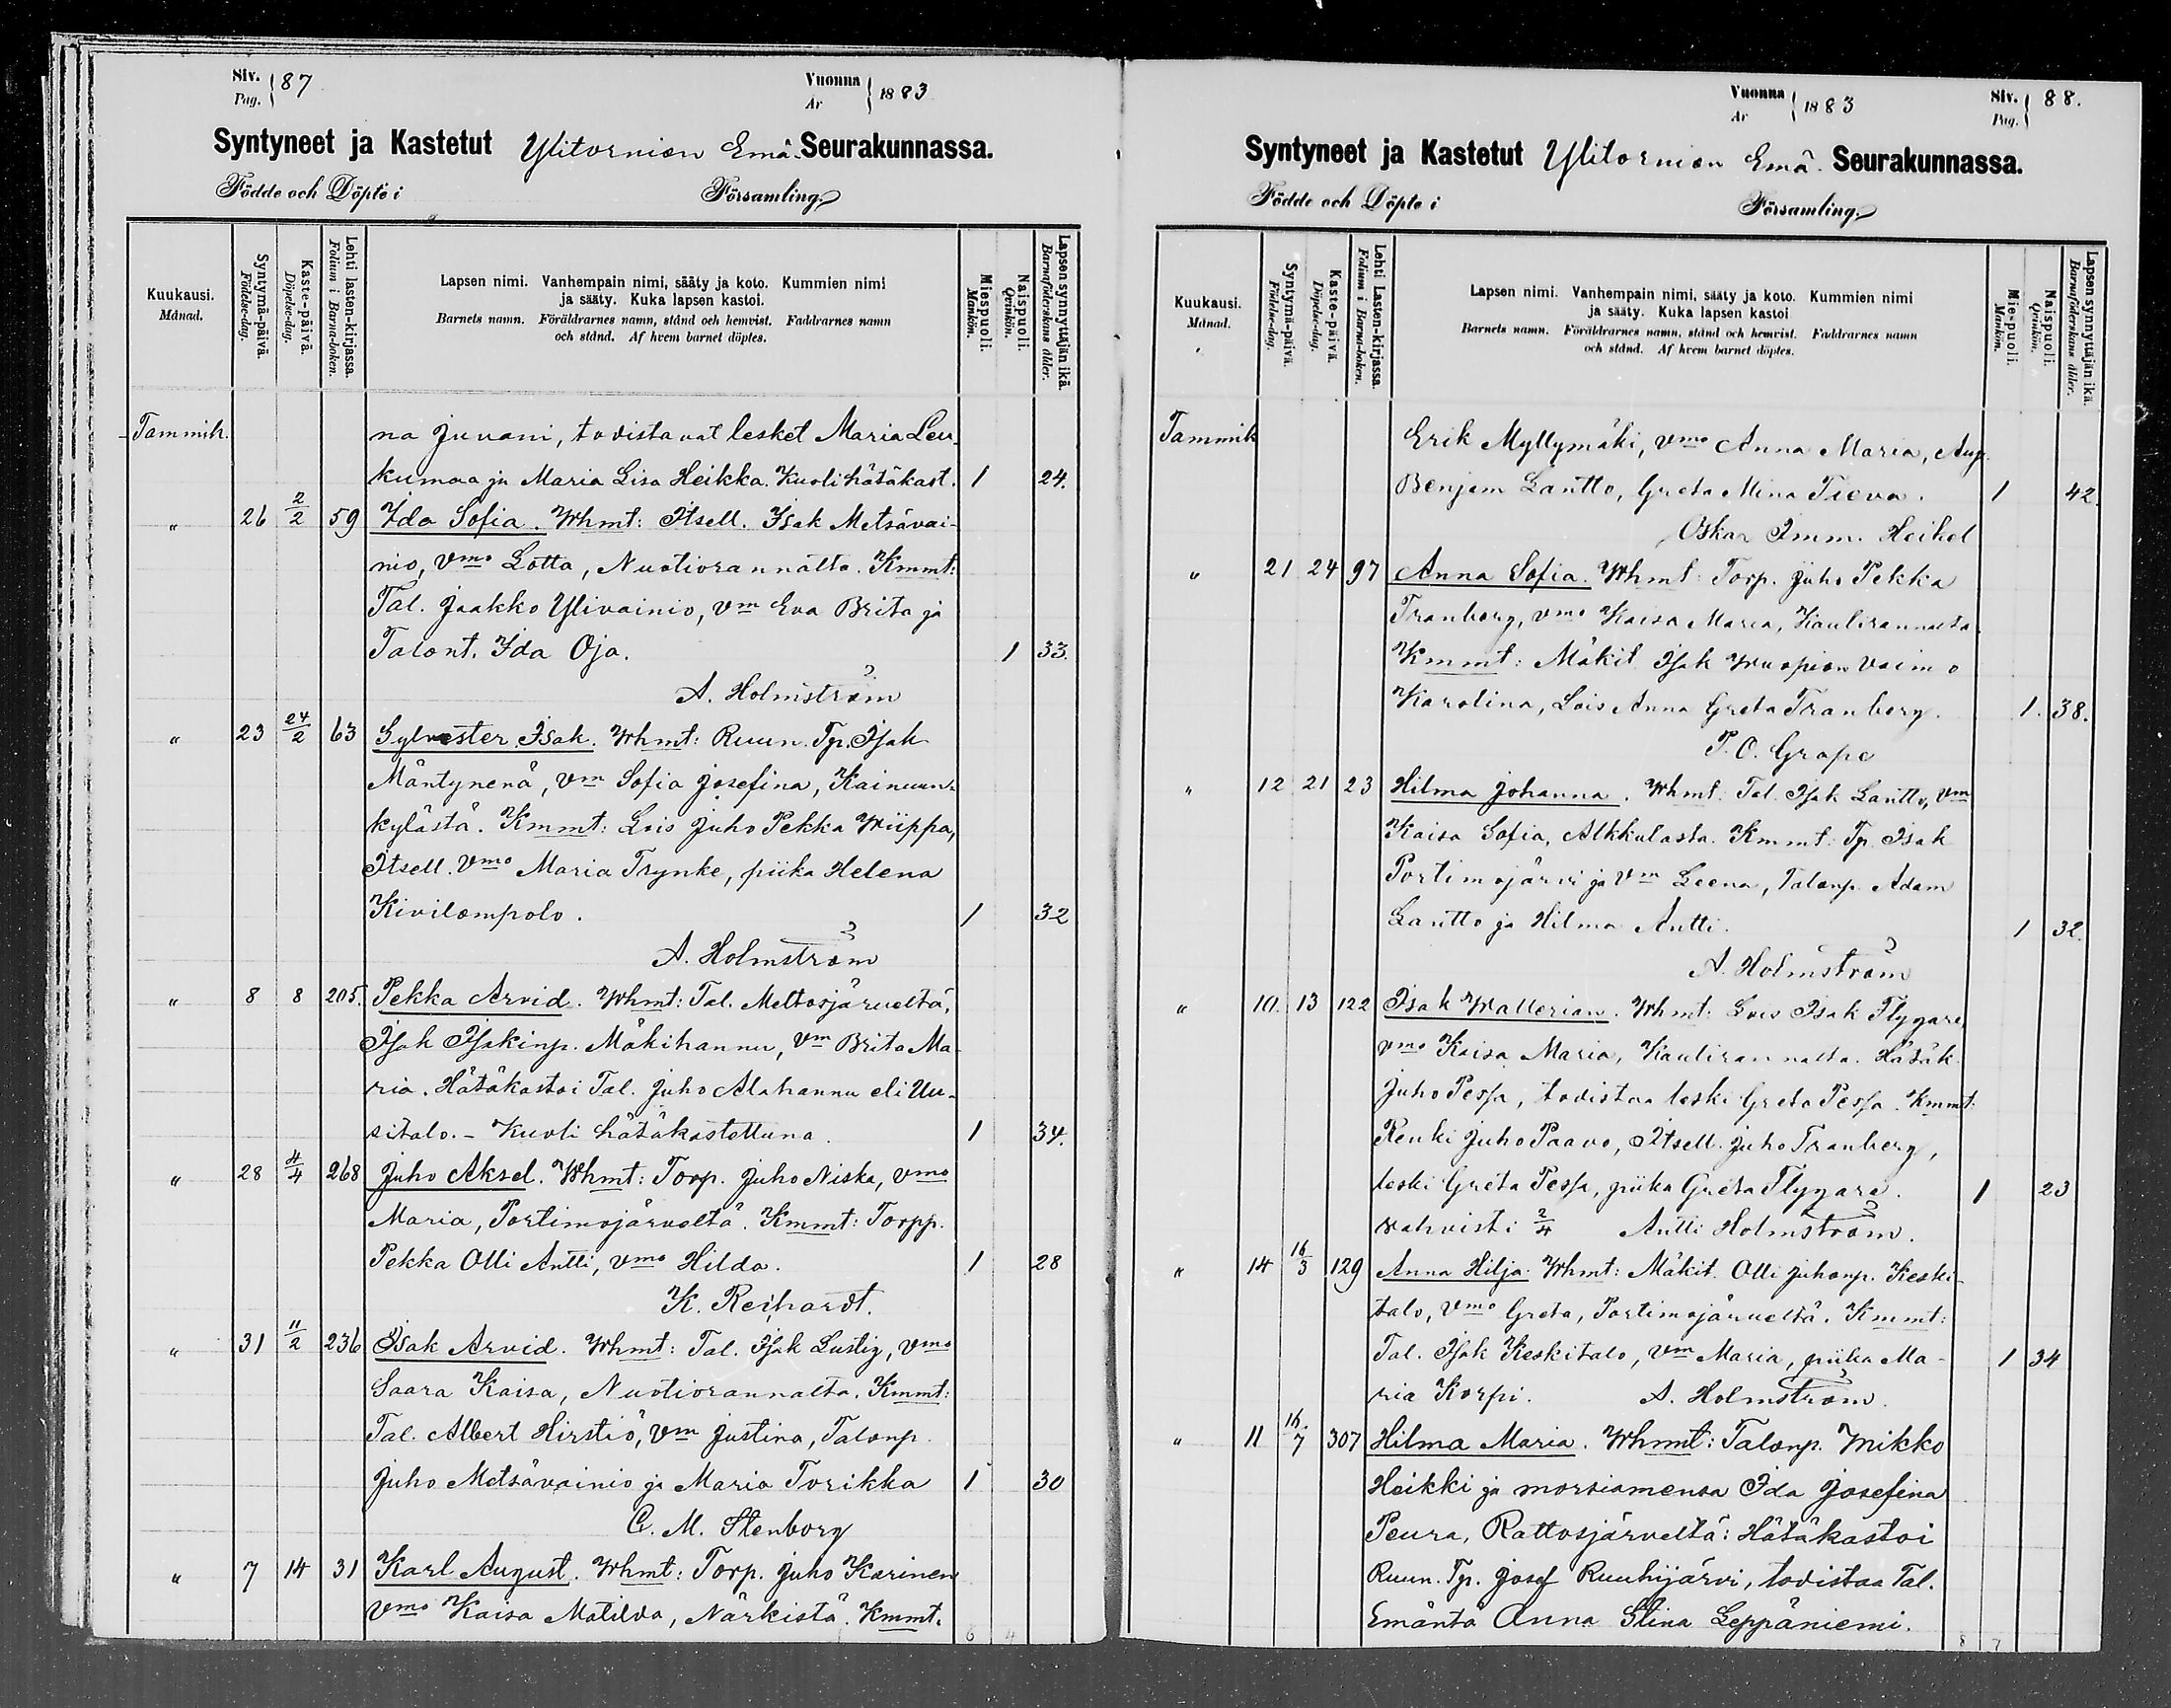 Siv. Pag. 87
Vuonna År 1883
Syntyneet ja Kastetut Ylitornion Emä Seurakunnassa.
Födde och Döpte i Församling.
Kuukausi. Månad.
Syntymä-päivä. Födelse-dag.
Kaste-päivä. Döpelse-dag.
Lehti lasten-kirjassa. Folium i Barna-boken.
Lapsen nimi. Vanhempain nimi, sääty ja koto. Kummien nimi
ja sääty. Kuka lapsen kastoi.
Barnets namn. Föräldrarnes namn, stånd och hemvist. Faddrarnes namn
och stånd. Af hvem barnet döptes.
Miespuoli. Mankön.
Naispuoli. Qvinkön.
Lapsen synnyttäjän ikä. Barnaföderskans ålder.
Tammik. na Juvani, todistavat lesket Maria Leu-
kumaa ja Maria Lisa Heikka. Kuoli hätäkast. 1 24.
" 26 2/2 59 Ida Sofia. Whmt: Itsell. Isak Metsävai-
nio, Vmo Lotta, Nuotiorannalta. Kmmt:
Tal. Jaakko Ylivainio, Vm Eva Brita ja
Talont. Ida Oja. 1 33.
A. Holmström
" 23 24/2 63 Sylvester Isak. Whmt: Ruun. Tp. Isak
Mäntynenä, Vm Sofia Josefina, Kainuun-
kylästä. Kmmt: Lois Juho Pekka Wiippa,
Itsell. Vmo Maria Trynke, piika Helena
Kivilompolo. 1 32
A. Holmström
" 8 8 205. Pekka Arvid. Whmt: Tal. Meltosjärveltä,
Isak Isakinp. Mäkihannu, Vm Brita Ma-
ria. Hätäkastoi Tal. Juho Alahannu eli Uu-
sitalo. - Kuoli hätäkastettuna. 1 34.
" 28 4/4 268 Juho Aksel. Whmt: Torp. Juho Niska, Vmo
Maria, Portimojärveltä. Kmmt: Torpp.
Pekka Olli Antti, Vmo Hilda. 1 28
K. Reihardt.
" 31 11/2 236 Isak Arvid. Whmt: Tal. Isak Lustig, Vmo
Saara Kaisa, Nuotiorannalta. Kmmt:
Tal. Albert Hirstiö, Vm Justina, Talonp.
Juho Metsävainio ja Maria Torikka 1 30
C. M. Stenborg
" 7 14 31 Karl August. Whmt: Torp. Juho Karinen
Vmo Kaisa Matilda, Närkistä. Kmmt.
6 4
Vuonna År 1883
Siv. Pag. 88.
Syntyneet ja Kastetut Ylitornion Emä. Seurakunnassa.
Födde och Döpte i Församling.
Kuukausi. Månad.
Syntymä-päivä. Födelse-dag.
Kaste-päivä. Döpelse-dag.
Lehti Lasten-kirjassa. Folium i Barna-boken.
Lapsen nimi. Vanhempain nimi, sääty ja koto. Kummien nimi
ja sääty. Kuka lapsen kastoi
Barnets namn. Föräldrarnes namn, stånd och hemvist. Faddrarnes namn
och stånd. Af hvem barnet döptes.
Mie-puoli. Mankön.
Naispuoli. Qvinkön.
Lapsen synnyttäjän ikä. Barnaföderskans ålder.
Tammik Erik Myllymäki, Vmo Anna Maria, Aug.
Benjam Lantto, Greta Mina Tieva. 1 42.
Oskar Imm. Heikel
" 21 24 97 Anna Sofia. Whmt: Torp. Juho Pekka
Tranberg, Vmo Kaisa Maria, Kaulirannalta.
Kmmt: Mäkit. Isak Wuopion Vaimo
Karolina, Lois Anna Greta Tranberg. 1. 38.
P. O. Grape
" 12 21 23 Hilma Johanna. Whmt: Tal. Isak Lantto, Vm
Kaisa Sofia, Alkkulasta. Kmmt: Tp. Isak
Portimojärvi ja Vm Leena, Talonp. Adam
Lantto ja Hilma Antti. 1 32.
A. Holmström
" 10. 13 122 Isak Wallerian. Whmt: Lois Isak Flygare,
Vmo Kaisa Maria, Kaulirannalta. Hätäk.
Juho Pessa, todistaa leski Greta Pessa. Kmmt:
Renki Juho Paavo, Itsell. Juho Tranberg,
leski Greta Pessa, piika Greta Flygare. 1 23
vahvisti 2/4 Antti Holmström.
" 14 16/3 129 Anna Hilja. Whmt: Mäkit. Olli Juhonp. Keski-
talo, Vmo Greta, Portimojärveltä. Kmmt:
Tal. Isak Keskitalo, Vm Maria, piika Ma- 1 34
ria Korpi. A. Holmström.
" 11 16/7 307 Hilma Maria. Whmt: Talonp. Mikko
Heikki ja morsiamensa Ida Josefina
Peura, Rattosjärveltä: Hätäkastoi
Ruun. Tp. Josef Ruuhijärvi, todistaa Tal.
Emäntä Anna Stina Leppäniemi.
8 7